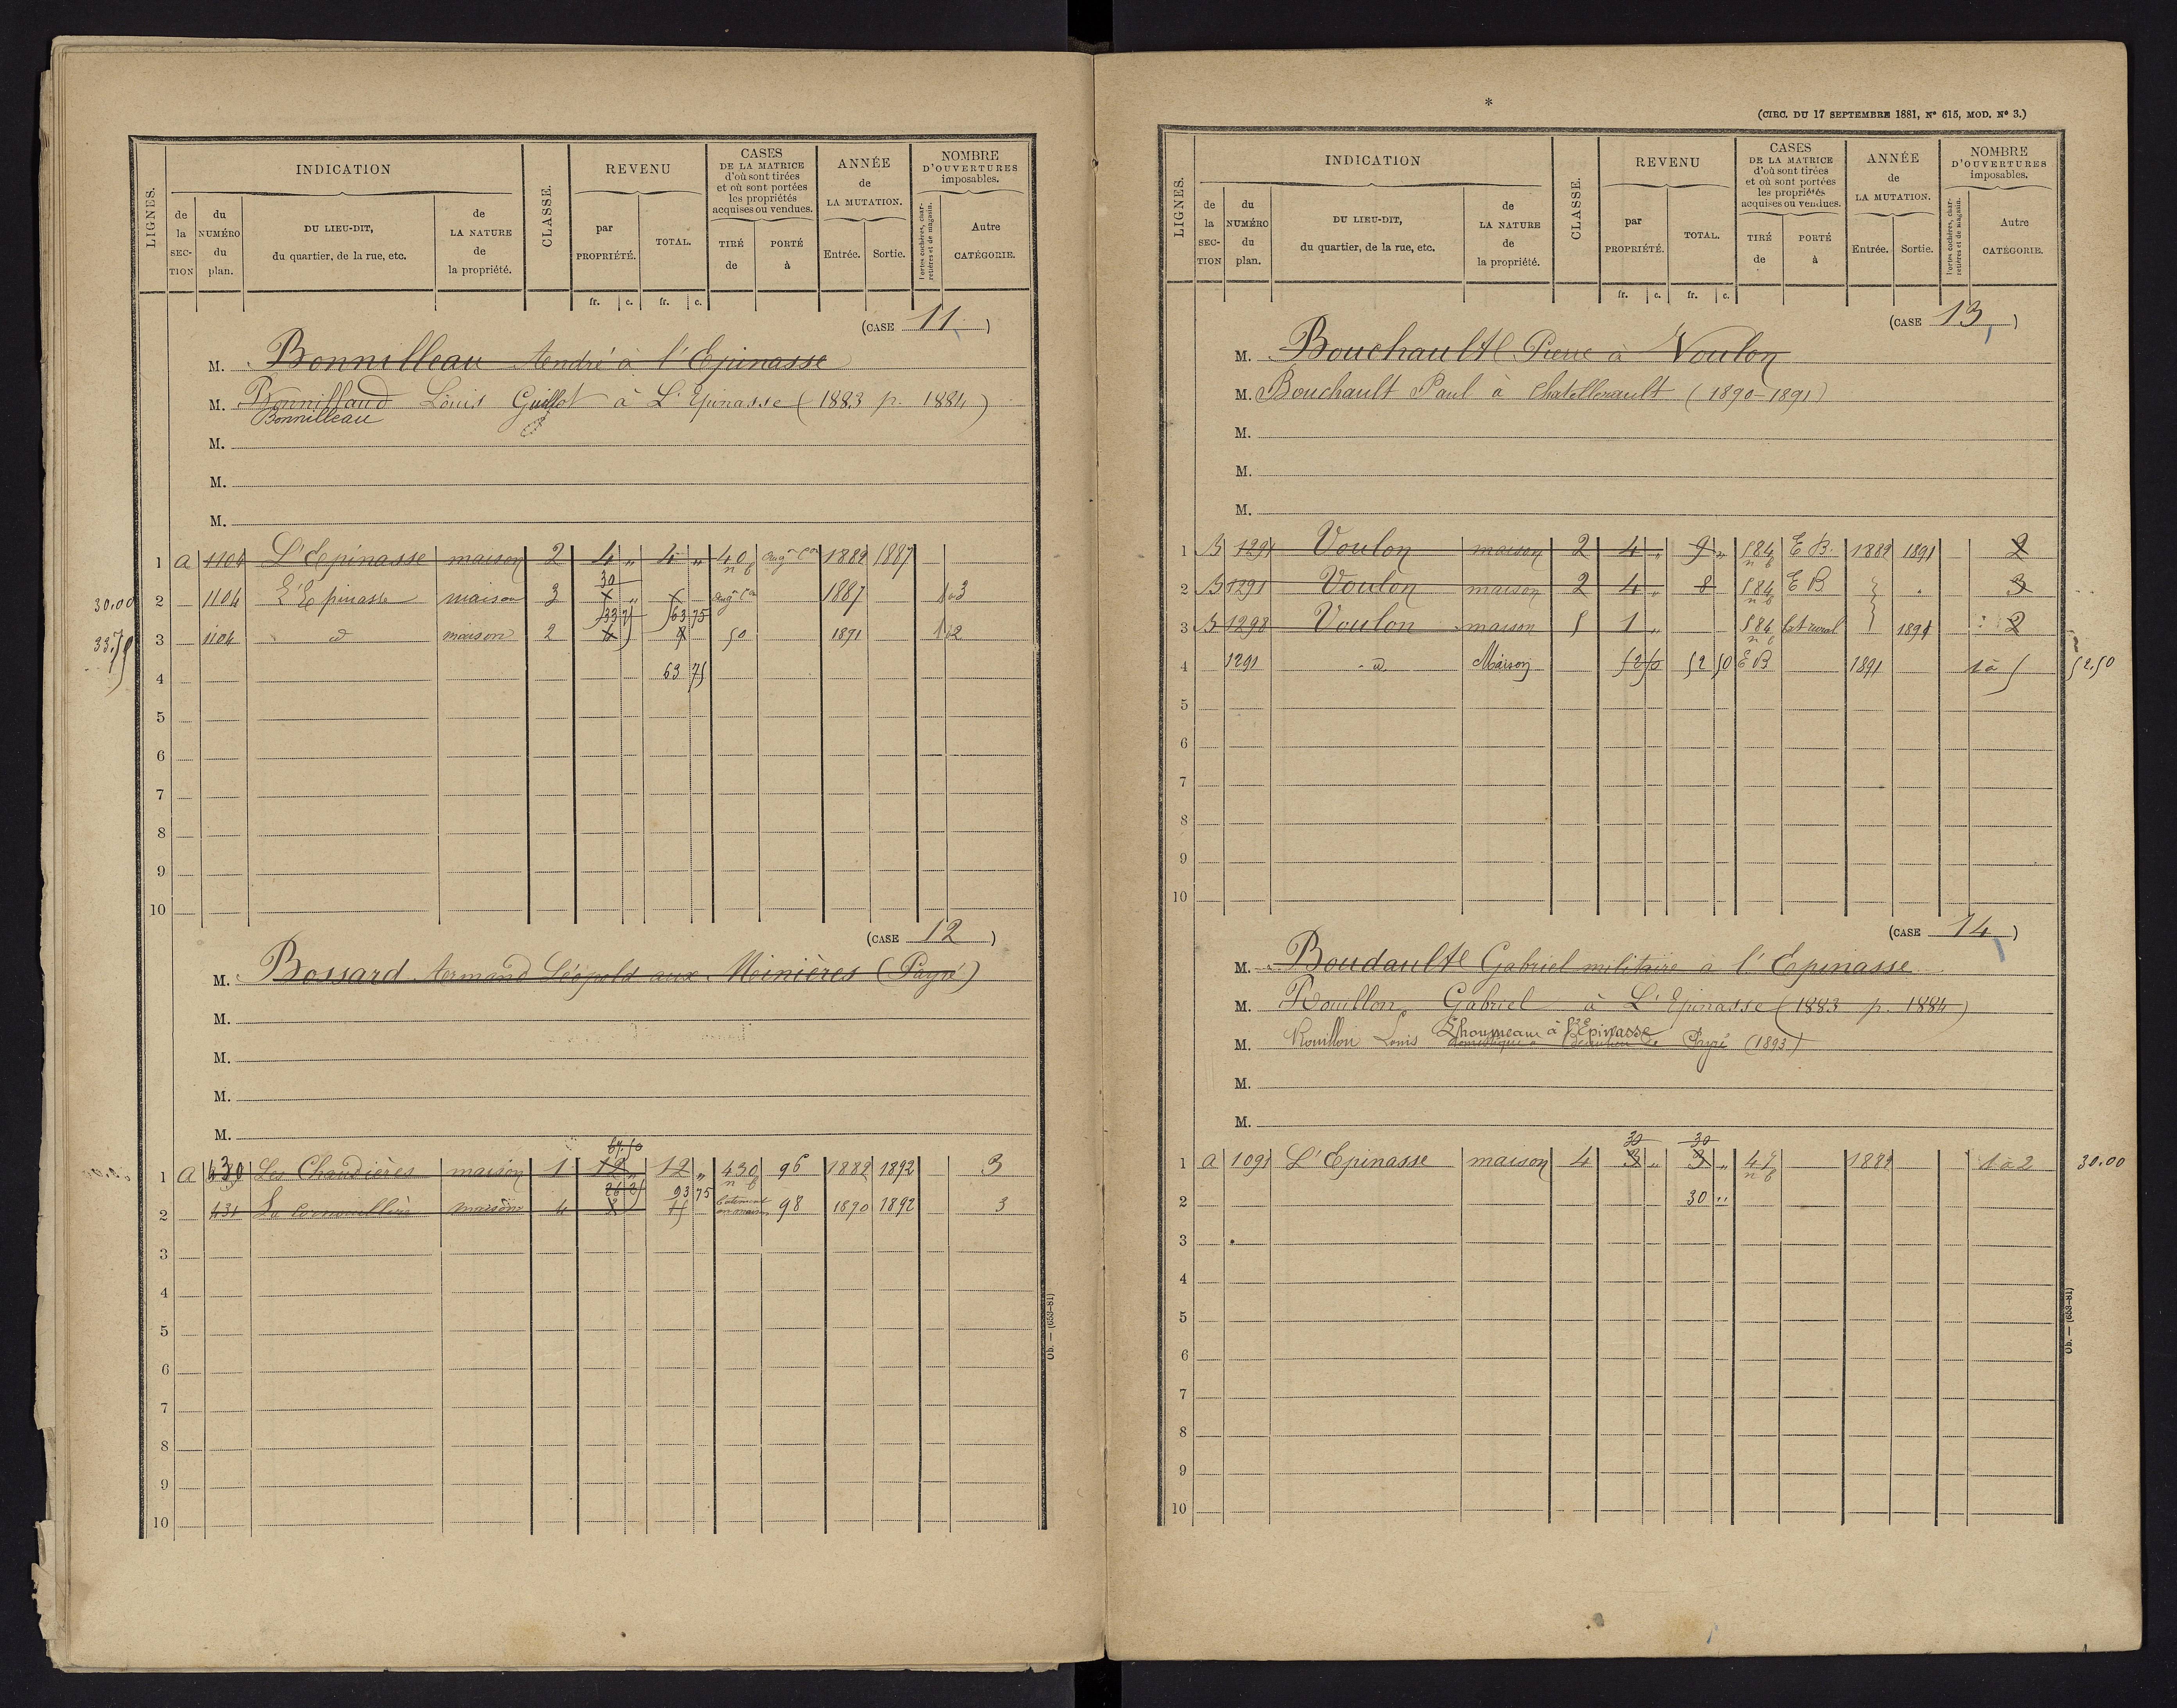 INDICATION
REVENU
CASES
DE LA MATRICE
d'où sont tirées
et où sont portées
les propriétés
acquises ou vendues.
ANNÉE
de
LA MUTATION.
NOMBRE
D'OUVERTURES
imposables.
LIGNES.
de la SECTION
du NUMÉRO du plan.
DU LIEU-DIT,
du quartier, de la rue, etc.
de LA NATURE de la propriété.
CLASSE.
par PROPRIÉTÉ.
TOTAL.
TIRÉ de
PORTÉ à
Entrée.
Sortie.
Portes cochères, charretières et de magasin.
Autre CATÉGORIE.
fr. c. fr. c.
(CASE 11)
M. Bonnilleau André à l'Epinasse
M. Bonnillaud Louis Guillot à L'Epinasse (1883 p. 1884)
Bonnilleau
M.
M.
M.
1 A 1104 L'Epinasse maison 2 4 " 4 " 40 n b augon 1882 1887
30
30.00 2 1104 L'Epinasse maison 3 1887 1 à 3
33 75 63 75
33.75 3 1104 d maison 2 50 1891 1 à 2
4 63 75
5
6
7
8
9
10
(CASE 12)
M. Bossard Armand Léopold aux Meinières (Payré)
M.
M.
M.
M.
67.50
1 A 430 Les Chaudières maison 1 12 " 12 " 430 n b 96 1882 1892 3
26 25 93 75
2 431 La Cornouillère maison 4 3 15 98 1890 1892 3
3
4
5
6
7
8
9
10
Ob. — (653-81)
*
(CIRC. DU 17 SEPTEMBRE 1881, N° 615, MOD. N° 3.)
INDICATION
REVENU
CASES
DE LA MATRICE
d'où sont tirées
et où sont portées
les propriétés
acquises ou vendues.
ANNÉE
de
LA MUTATION.
NOMBRE
D'OUVERTURES
imposables.
LIGNES.
de la SECTION
du NUMÉRO du plan.
DU LIEU-DIT,
du quartier, de la rue, etc.
de LA NATURE de la propriété.
CLASSE.
par PROPRIÉTÉ.
TOTAL.
TIRÉ de
PORTÉ à
Entrée.
Sortie.
Portes cochères, charretières et de magasin.
Autre CATÉGORIE.
fr. c. fr. c.
(CASE 13)
M. Bouchault Pierre à Voulon
M. Bouchault Paul à Chatellerault (1890-1891)
M.
M.
M.
1 B 1291 Voulon maison 2 4 " 9 " 584 n b E B. 1882 1891 2
2 B 1291 Voulon maison 2 4 " 8 584 n b E B 3
3 B 1298 Voulon maison 5 1 " 584 n b bat rural 1891 2
4 1291 d Maison 52 50 52 50 E B 1891 1 à 5 52.50
5
6
7
8
9
10
(CASE 14)
M. Boudault Gabriel militaire à l'Epinasse
M. Rouillon Gabriel à L'Epinasse (1883 p. 1884)
M. Rouillon Louis à l'Epinasse Payré (1893)
M.
M.
30 30
1 A 1091 L'Epinasse maison 4 3 " 3 " 47 n b 1882 1 à 2 30.00
2 30 "
3
4
5
6
7
8
9
10
Ob. — (653-81)